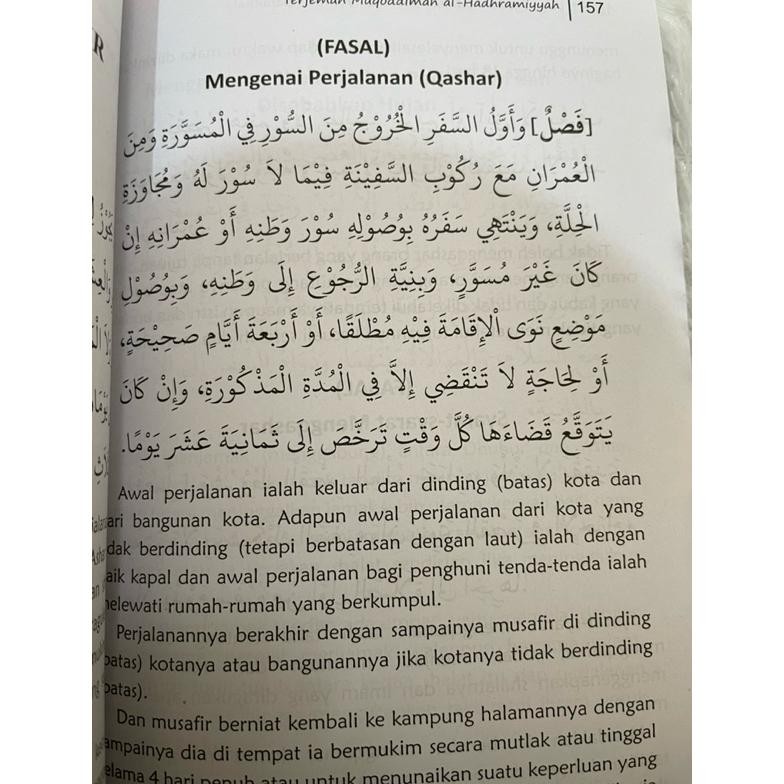 Terjemah Muqoddimah al-Hadhramiyyah | 157
(FASAL)
Mengenai Perjalanan (Qashar)
[فَصْلٌ] وَأَوَّلُ السَّفَرِ الْخُرُوْجُ مِنَ السُّوْرِ فِي الْمُسَوَّرَةِ وَمِنَ
الْعُمْرَانِ مَعَ رُكُوْبِ السَّفِيْنَةِ فِيْمَا لَا سُوْرَ لَهُ وَمُجَاوَزَةِ
الْحِلَّةِ، وَيَنْتَهِي سَفَرُهُ بِوُصُوْلِهِ سُوْرَ وَطَنِهِ أَوْ عُمْرَانِهِ إِنْ
كَانَ غَيْرَ مُسَوَّرٍ، وَبِنِيَّةِ الرُّجُوْعِ إِلَى وَطَنِهِ، وَبِوُصُوْلِ
مَوْضِعٍ نَوَى الْإِقَامَةَ فِيْهِ مُطْلَقًا، أَوْ أَرْبَعَةَ أَيَّامٍ صَحِيْحَةٍ،
أَوْ لِحَاجَةٍ لَا تَنْقَضِي إِلَّا فِي الْمُدَّةِ الْمَذْكُوْرَةِ، وَإِنْ كَانَ
يَتَوَقَّعُ قَضَاءَهَا كُلَّ وَقْتٍ تَرَخَّصَ إِلَى ثَمَانِيَةَ عَشَرَ يَوْمًا.
Awal perjalanan ialah keluar dari dinding (batas) kota dan
ari bangunan kota. Adapun awal perjalanan dari kota yang
dak berdinding (tetapi berbatasan dengan laut) ialah dengan
aik kapal dan awal perjalanan bagi penghuni tenda-tenda ialah
elewati rumah-rumah yang berkumpul.
Perjalanannya berakhir dengan sampainya musafir di dinding
batas) kotanya atau bangunannya jika kotanya tidak berdinding
batas).
Dan musafir berniat kembali ke kampung halamannya dengan
ampainya dia di tempat ia bermukim secara mutlak atau tinggal
elama 4 hari penuh atau untuk menunaikan suatu keperluan yang